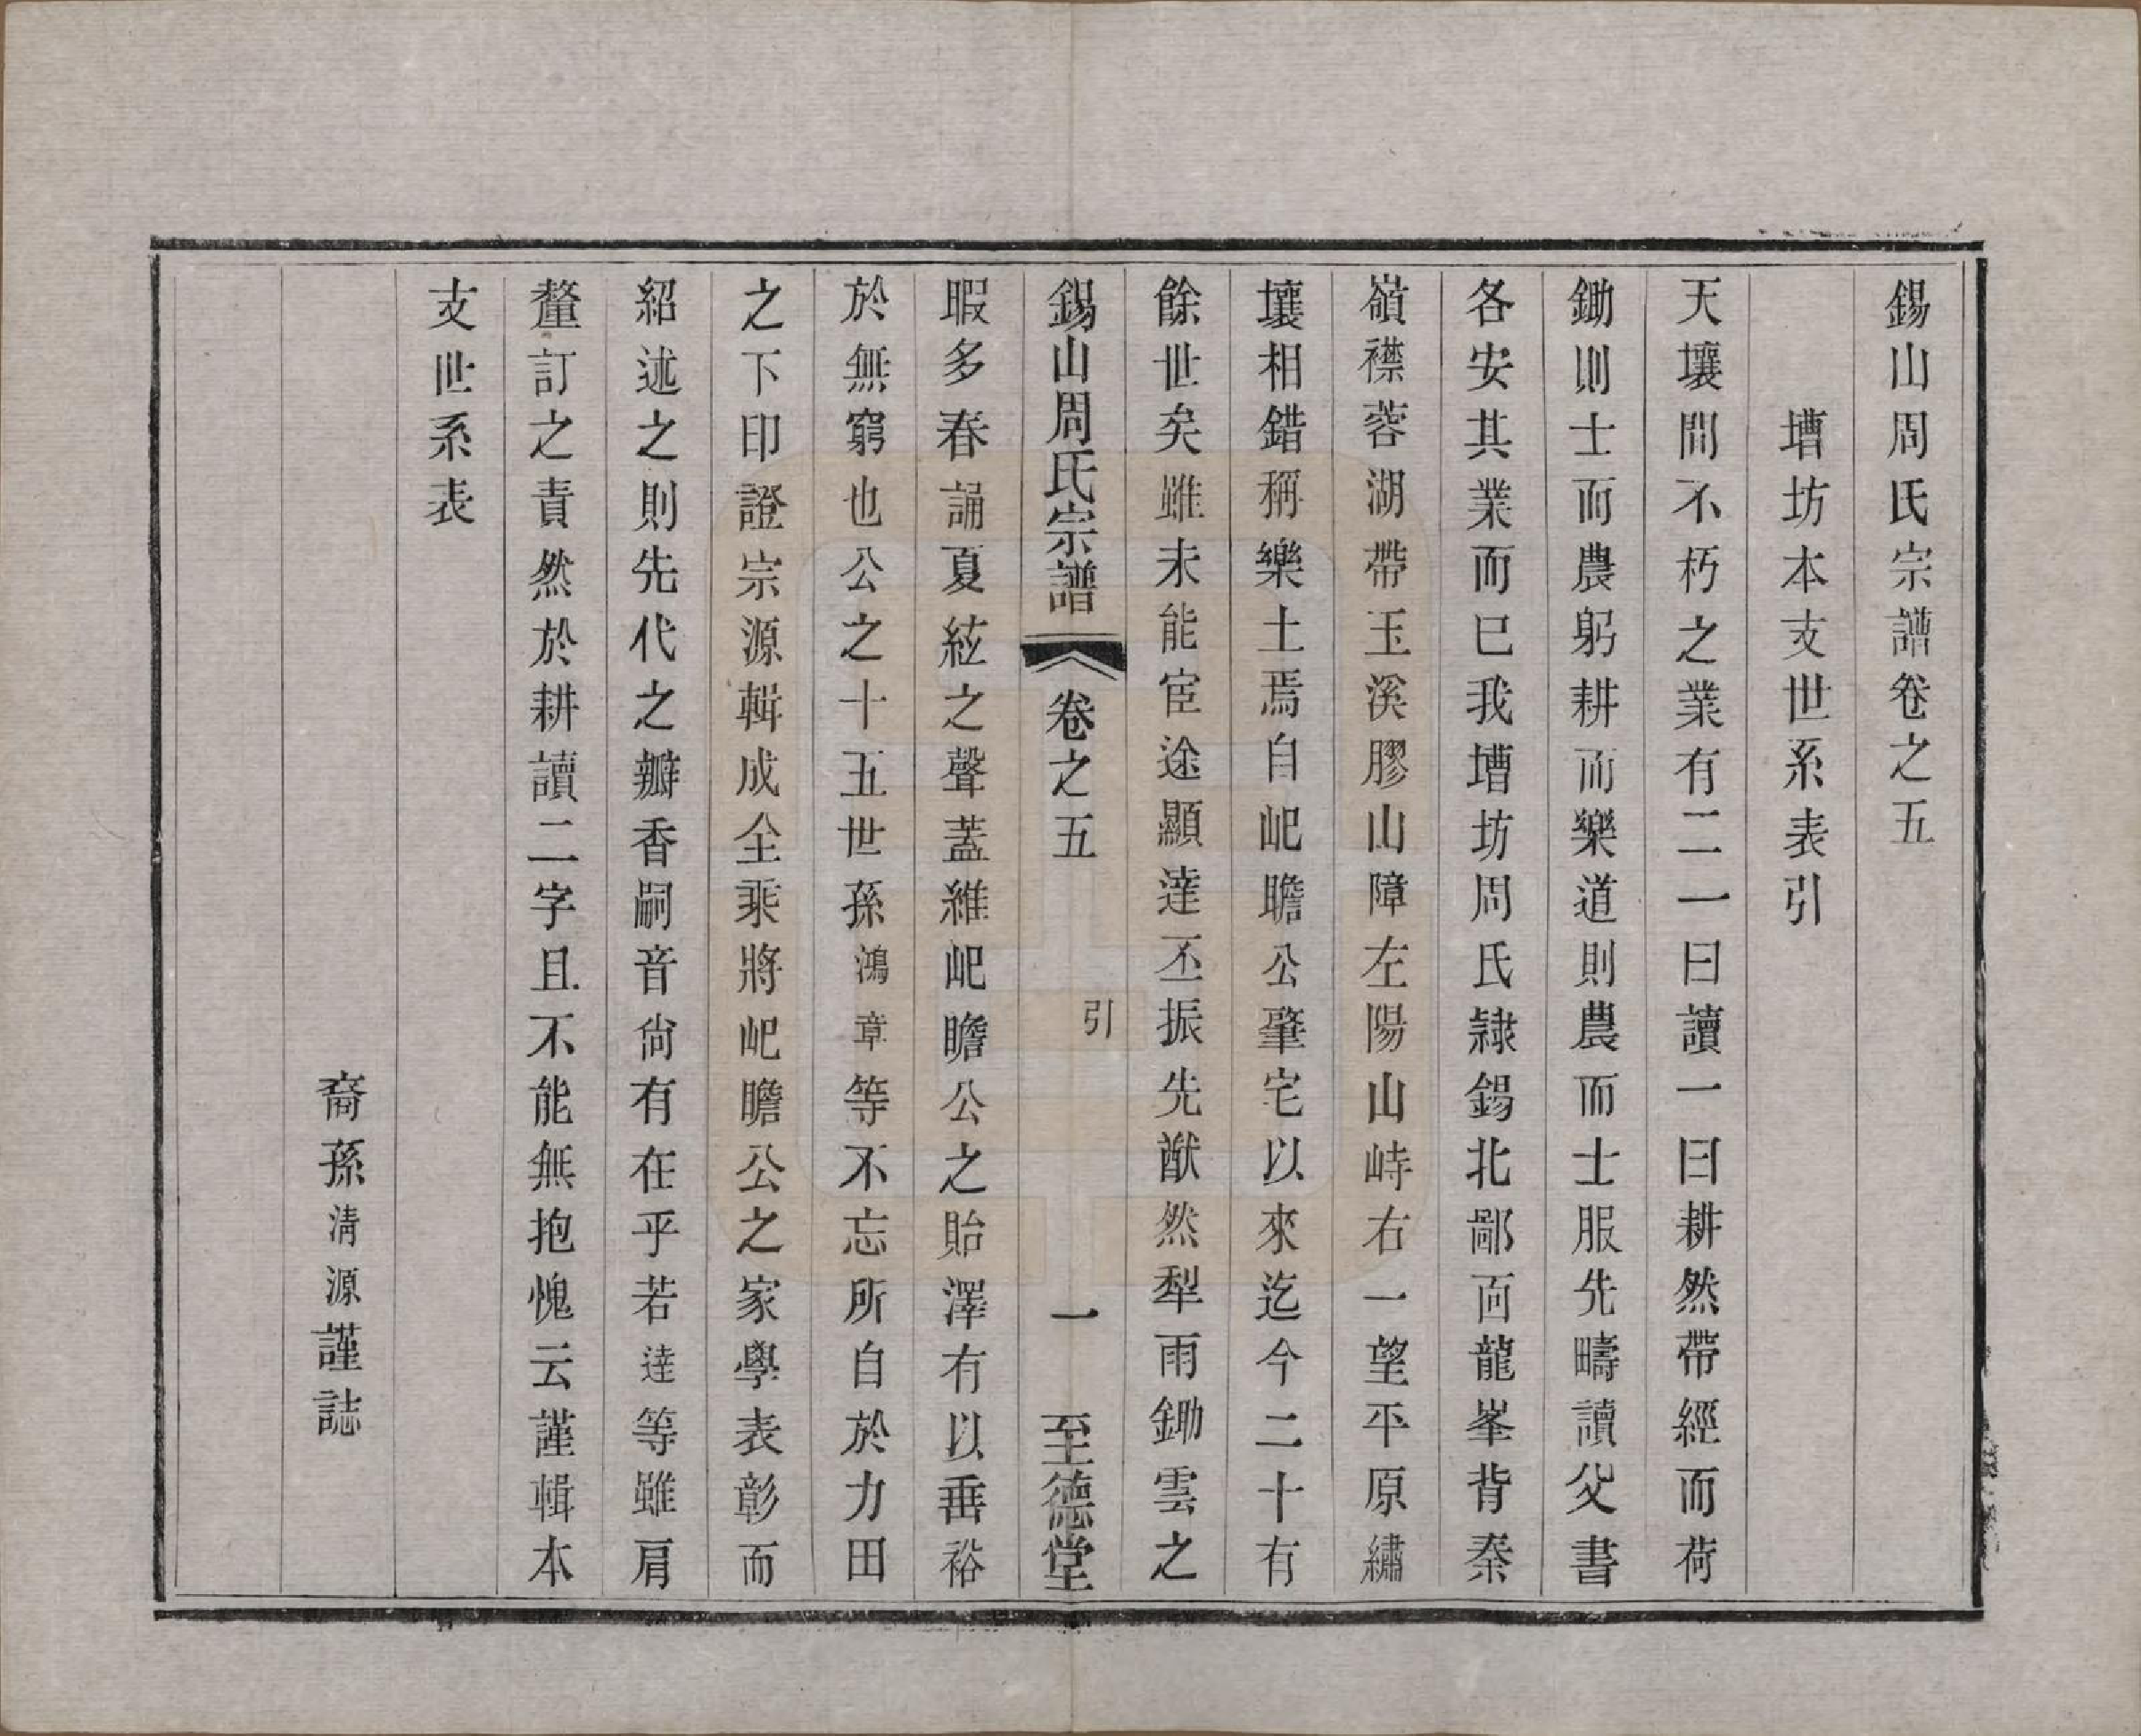 錫山周氏宗譜卷之五
墰坊本支世系表引
天壤間不朽之業有二一曰讀一曰耕然帶經而荷
鋤則士而農躬耕而樂道則農而士服先疇讀父書
各安其業而已我墰坊周氏隷錫北鄙面龍峯背秦
嶺襟蓉湖帶玉溪膠山障左陽山峙右一望平原繡
壤相錯稱樂土焉自屺瞻公肇宅以來迄今二十有
餘世矣雖未能宦途顯達丕振先猷然犁雨鋤雲之
錫山周氏宗譜 卷之五 引 一 至德堂
暇多春誦夏絃之聲蓋維屺瞻公之貽澤有以垂裕
於無窮也公之十五世孫鴻章等不忘所自於力田
之下印證宗源輯成全乘將屺瞻公之家學表彰而
紹述之則先代之瓣香嗣音尙有在乎若達等雖肩
釐訂之責然於耕讀二字且不能無抱愧云謹輯本
支世系表
裔孫清源謹誌